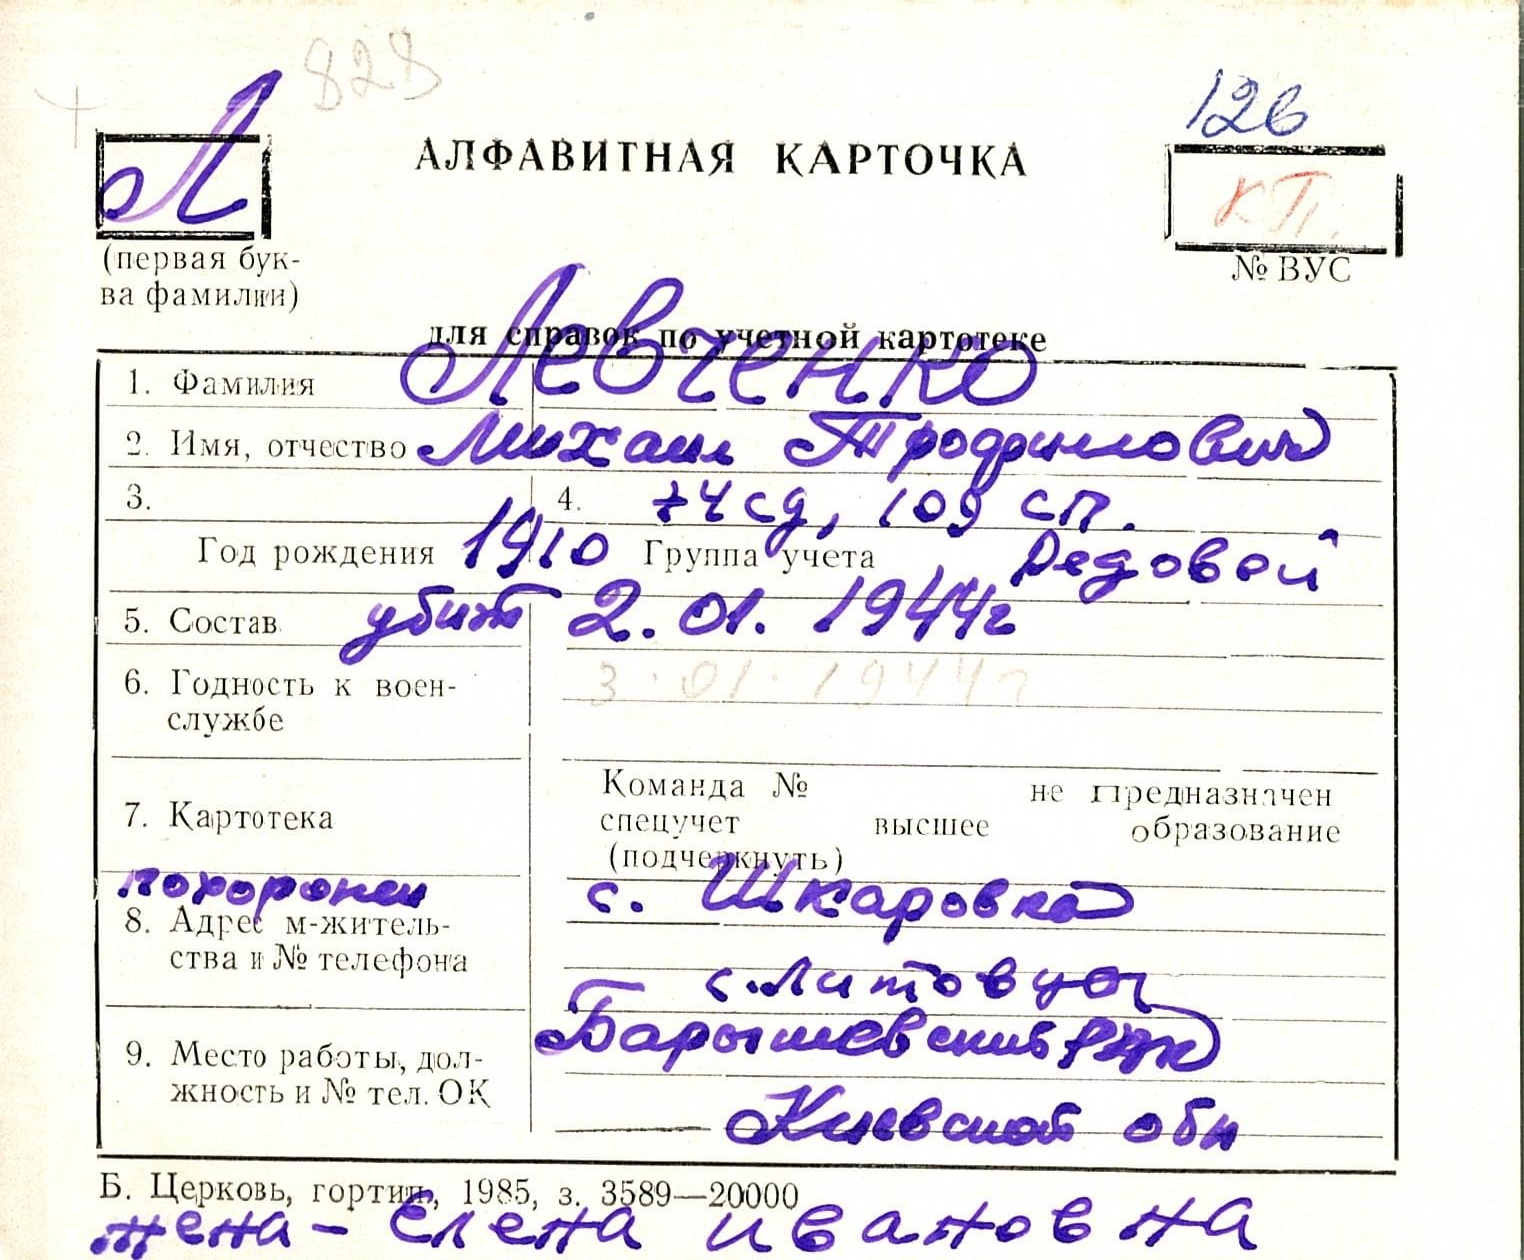 828
126
Л
АЛФАВИТНАЯ КАРТОЧКА
КП.
(первая бук-
ва фамилии)
№ ВУС
для справок по учетной картотеке
1. Фамилия Левченко
2. Имя, отчество Михаил Трофимович
3. 4. 74 сд, 109 сп.
Год рождения 1910 Группа учета Редовой
5. Состав убит 2.01.1944г
3.01.1944г
6. Годность к воен-
службе
Команда № не предназначен
7. Картотека
спецучет высшее образование
(подчеркнуть)
похоронен с. Шкаровка
8. Адрес м-житель-
ства и № телефона
с. Литовцы
Барышевский РВК
9. Место работы, дол-
жность и № тел. ОК
Киевской обл
Б. Церковь, гортип., 1985, з. 3589—20000
жена - Елена Ивановна